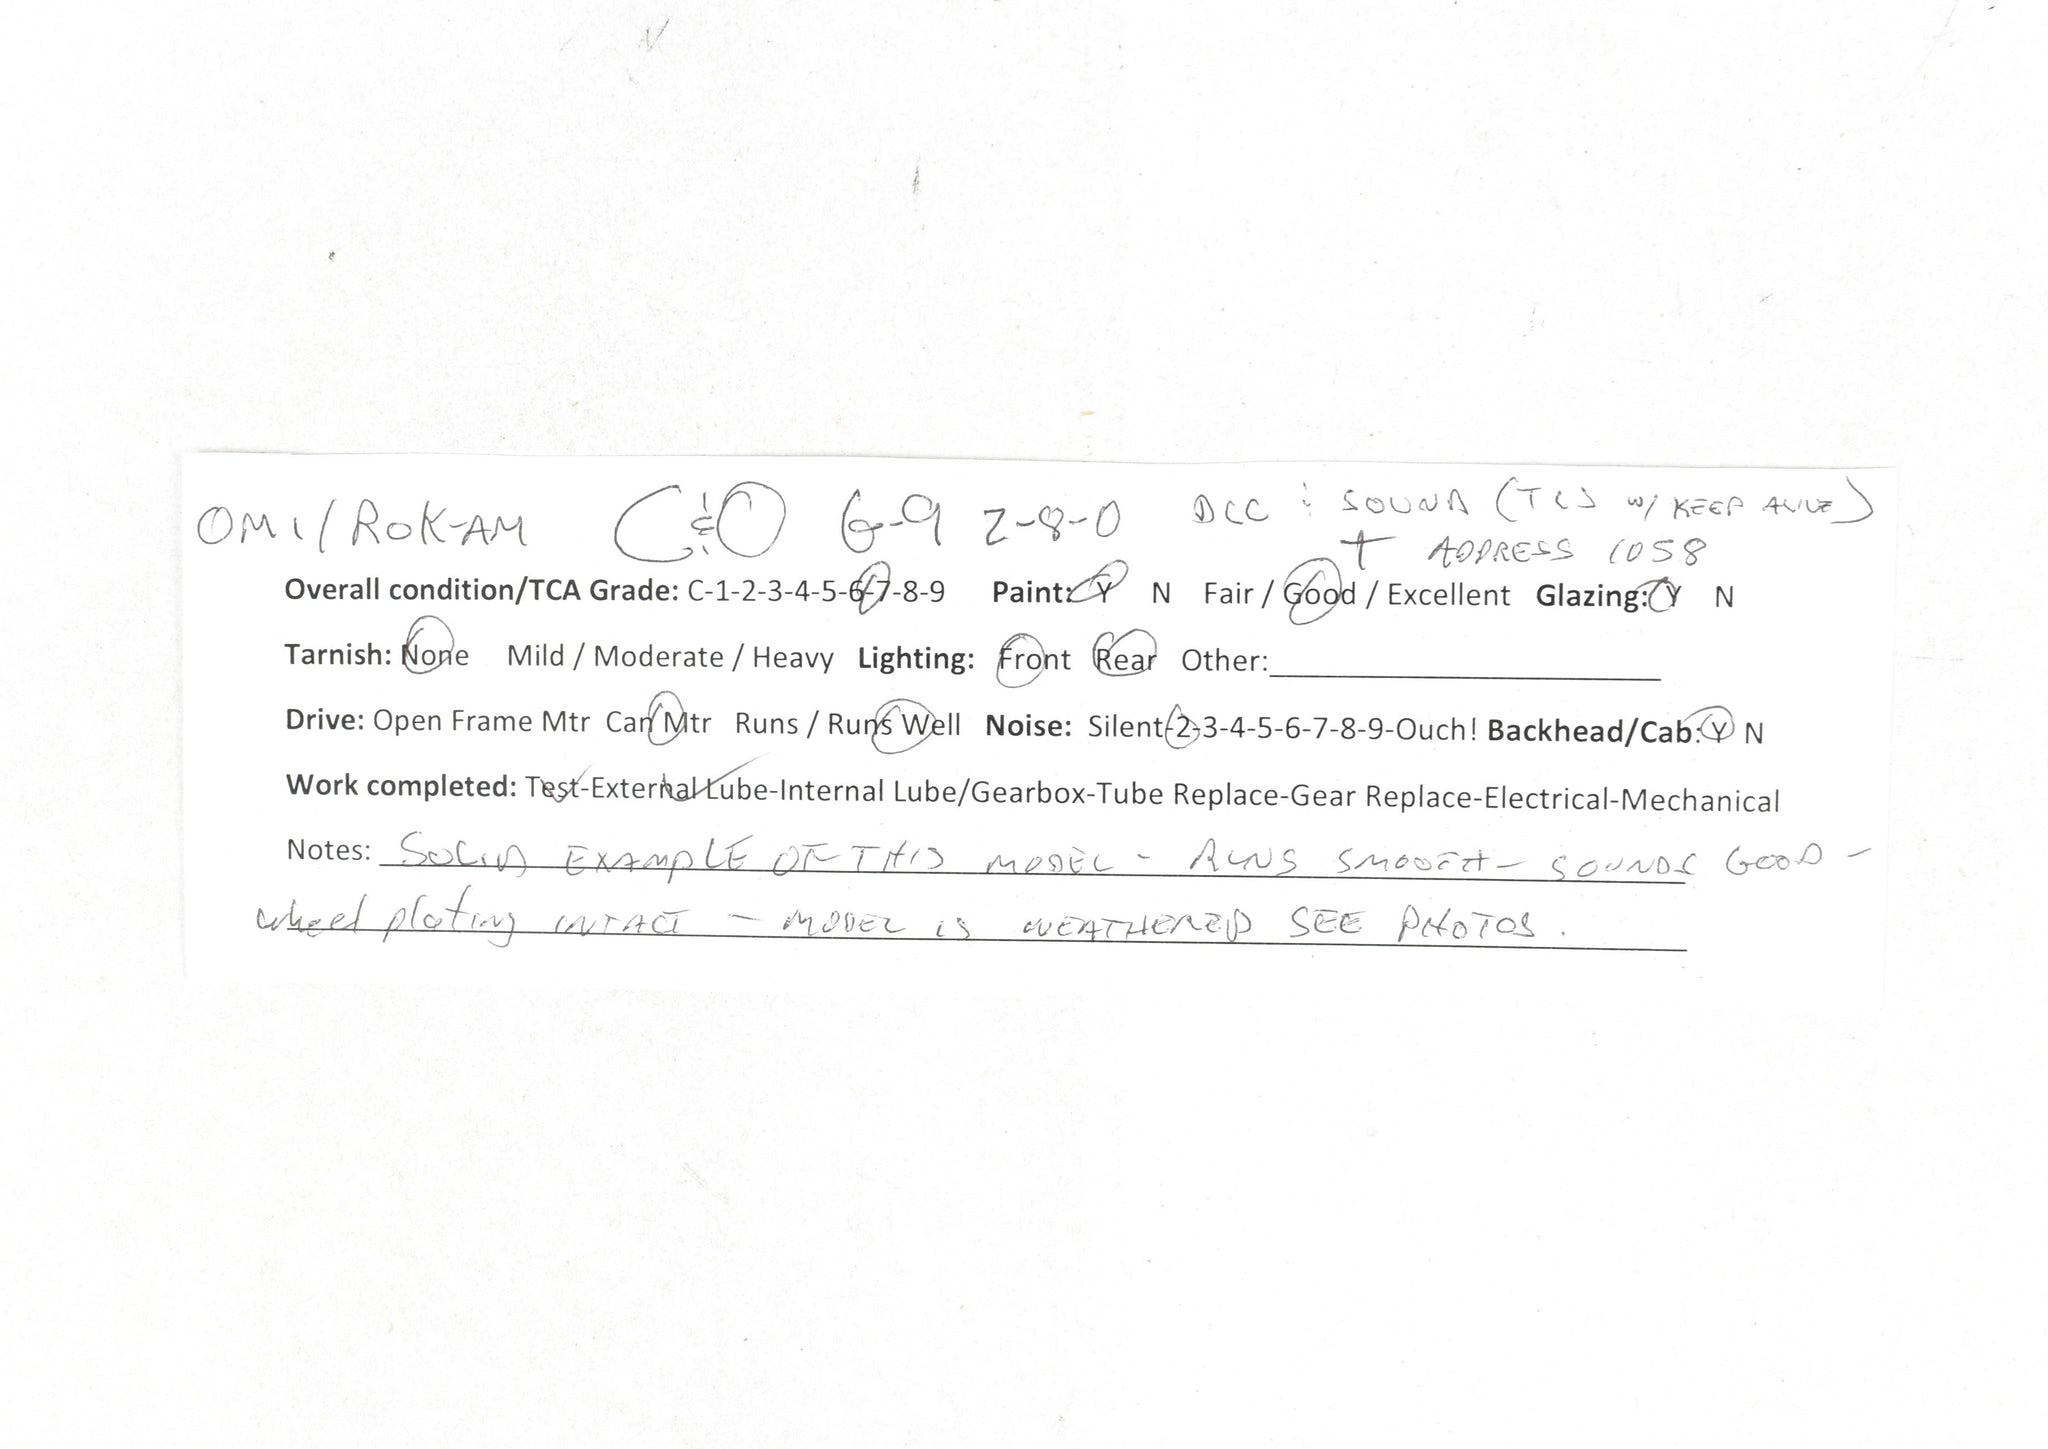 OMI/ROK-AM C&O G-9 2-8-0 DCC & SOUND (TCS W/ KEEP ALIVE)
+ ADDRESS 1058
Overall condition/TCA Grade: C-1-2-3-4-5-6-7-8-9 Paint: Y N Fair / Good / Excellent Glazing: Y N
Tarnish: None Mild / Moderate / Heavy Lighting: Front Rear Other:
Drive: Open Frame Mtr Can Mtr Runs / Runs Well Noise: Silent-2-3-4-5-6-7-8-9-Ouch! Backhead/Cab: Y N
Work completed: Test-External Lube-Internal Lube/Gearbox-Tube Replace-Gear Replace-Electrical-Mechanical
Notes: SOLID EXAMPLE OF THIS MODEL - RUNS SMOOTH - SOUNDS GOOD -
wheel plating INTACT - MODEL IS WEATHERED SEE PHOTOS.